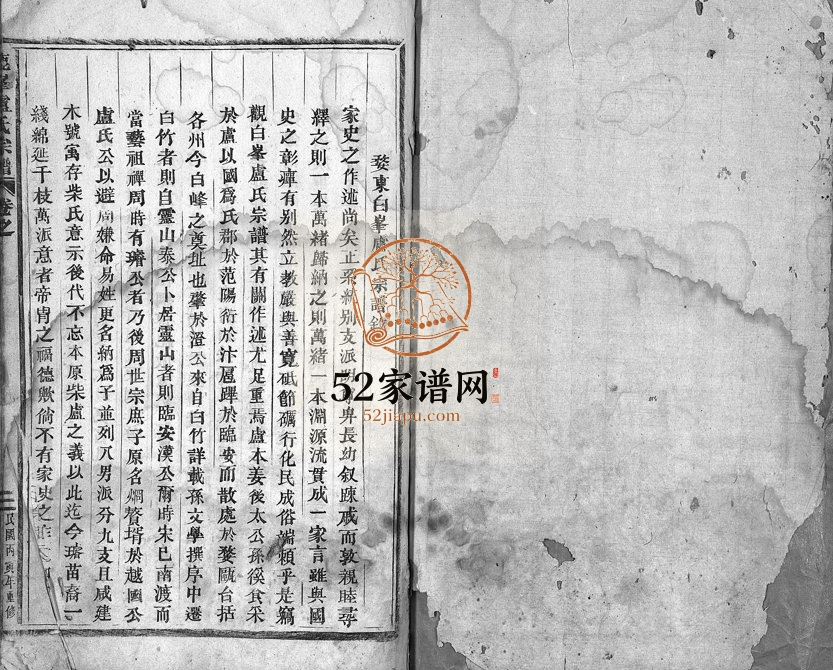 婺東白峯盧氏宗譜
家史之作述尚矣正系綂別支派卑長幼叙踈戚而敦親睦尋
繹之則一本萬緒歸納之則萬緒一本淵源流貫成一家言雖與國
史之彰癉有別然立教嚴與善寬砥節礪行化民成俗端賴乎是竊
觀白峯盧氏宗譜其有關作述尤足重焉盧本姜後太公孫傒食采
於盧以國爲氏郡於范陽衍於汴扈蹕於臨安而散處於婺甌台括
各州今白峰之奠址也肇於澄公來自白竹詳載孫文學撰序中遷
白竹者則自靈山泰公卜居靈山者則臨安漢公爾時宋已南渡而
當藝祖禪周時有璿公者乃後周世宗庶子原名烱贅壻於越國公
盧氏公以避周嫌命易姓更名納爲子並列八男派分九支且咸建
木號寓存柴氏意示後代不忘本原柴盧之義以此迄今瑤苗裔一
綫綿延千枝萬派意者帝胄之福德歟倘不有家史之作
盧氏宗譜
卷之
二
民國丙寅年重修
52家谱网
52jiapu.com